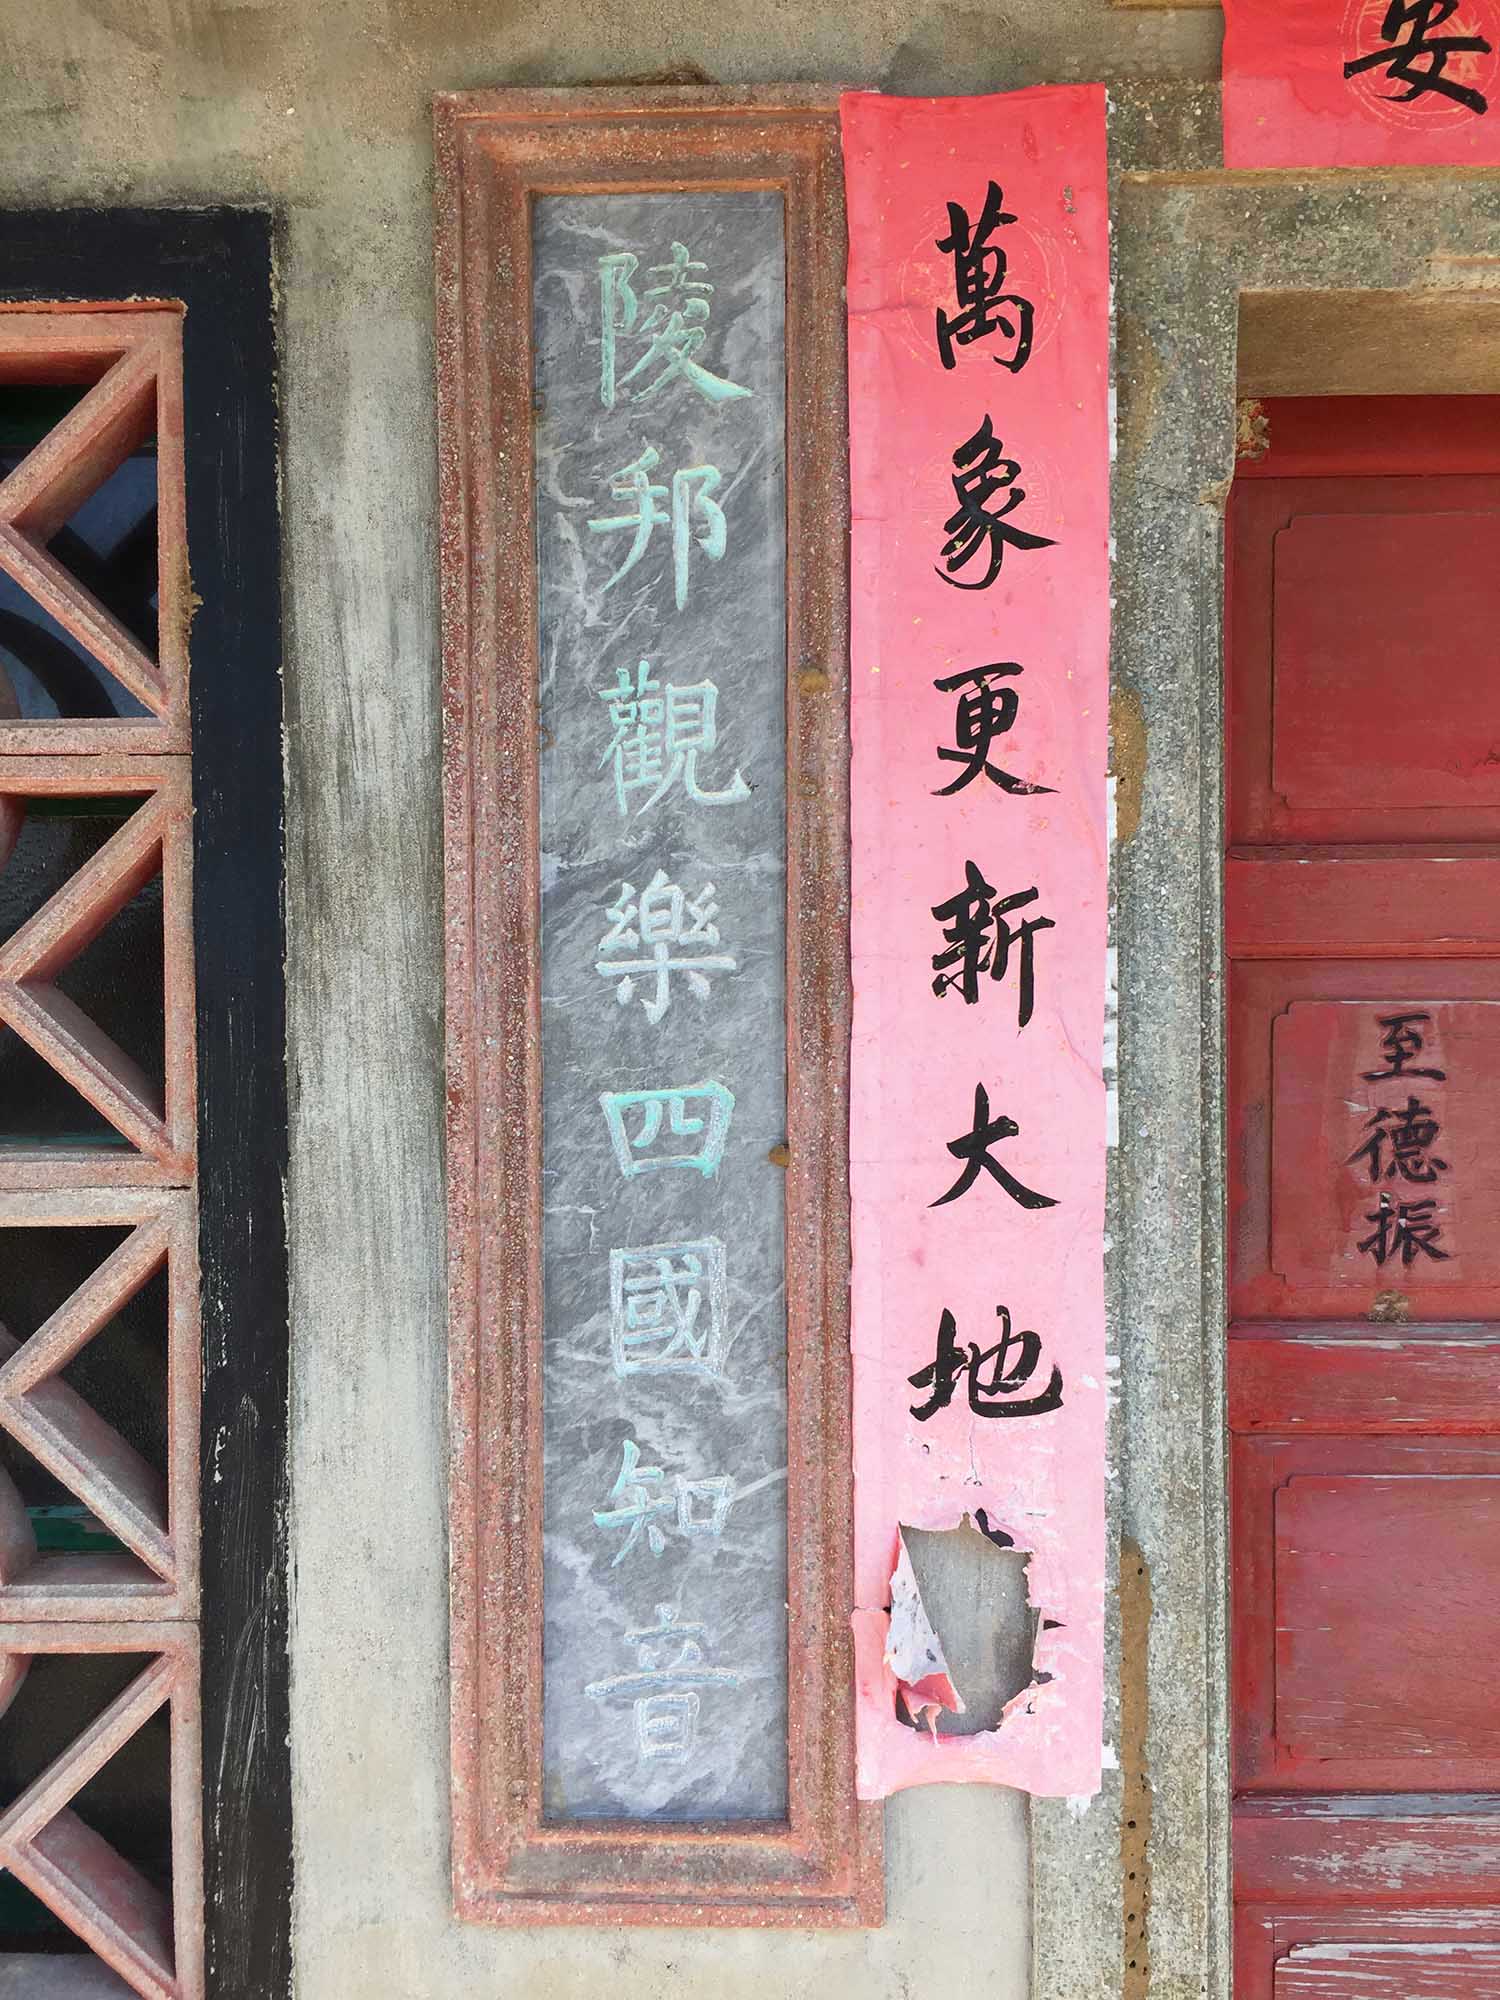 安
萬象更新大地
陵邦觀樂四國知音
至德振